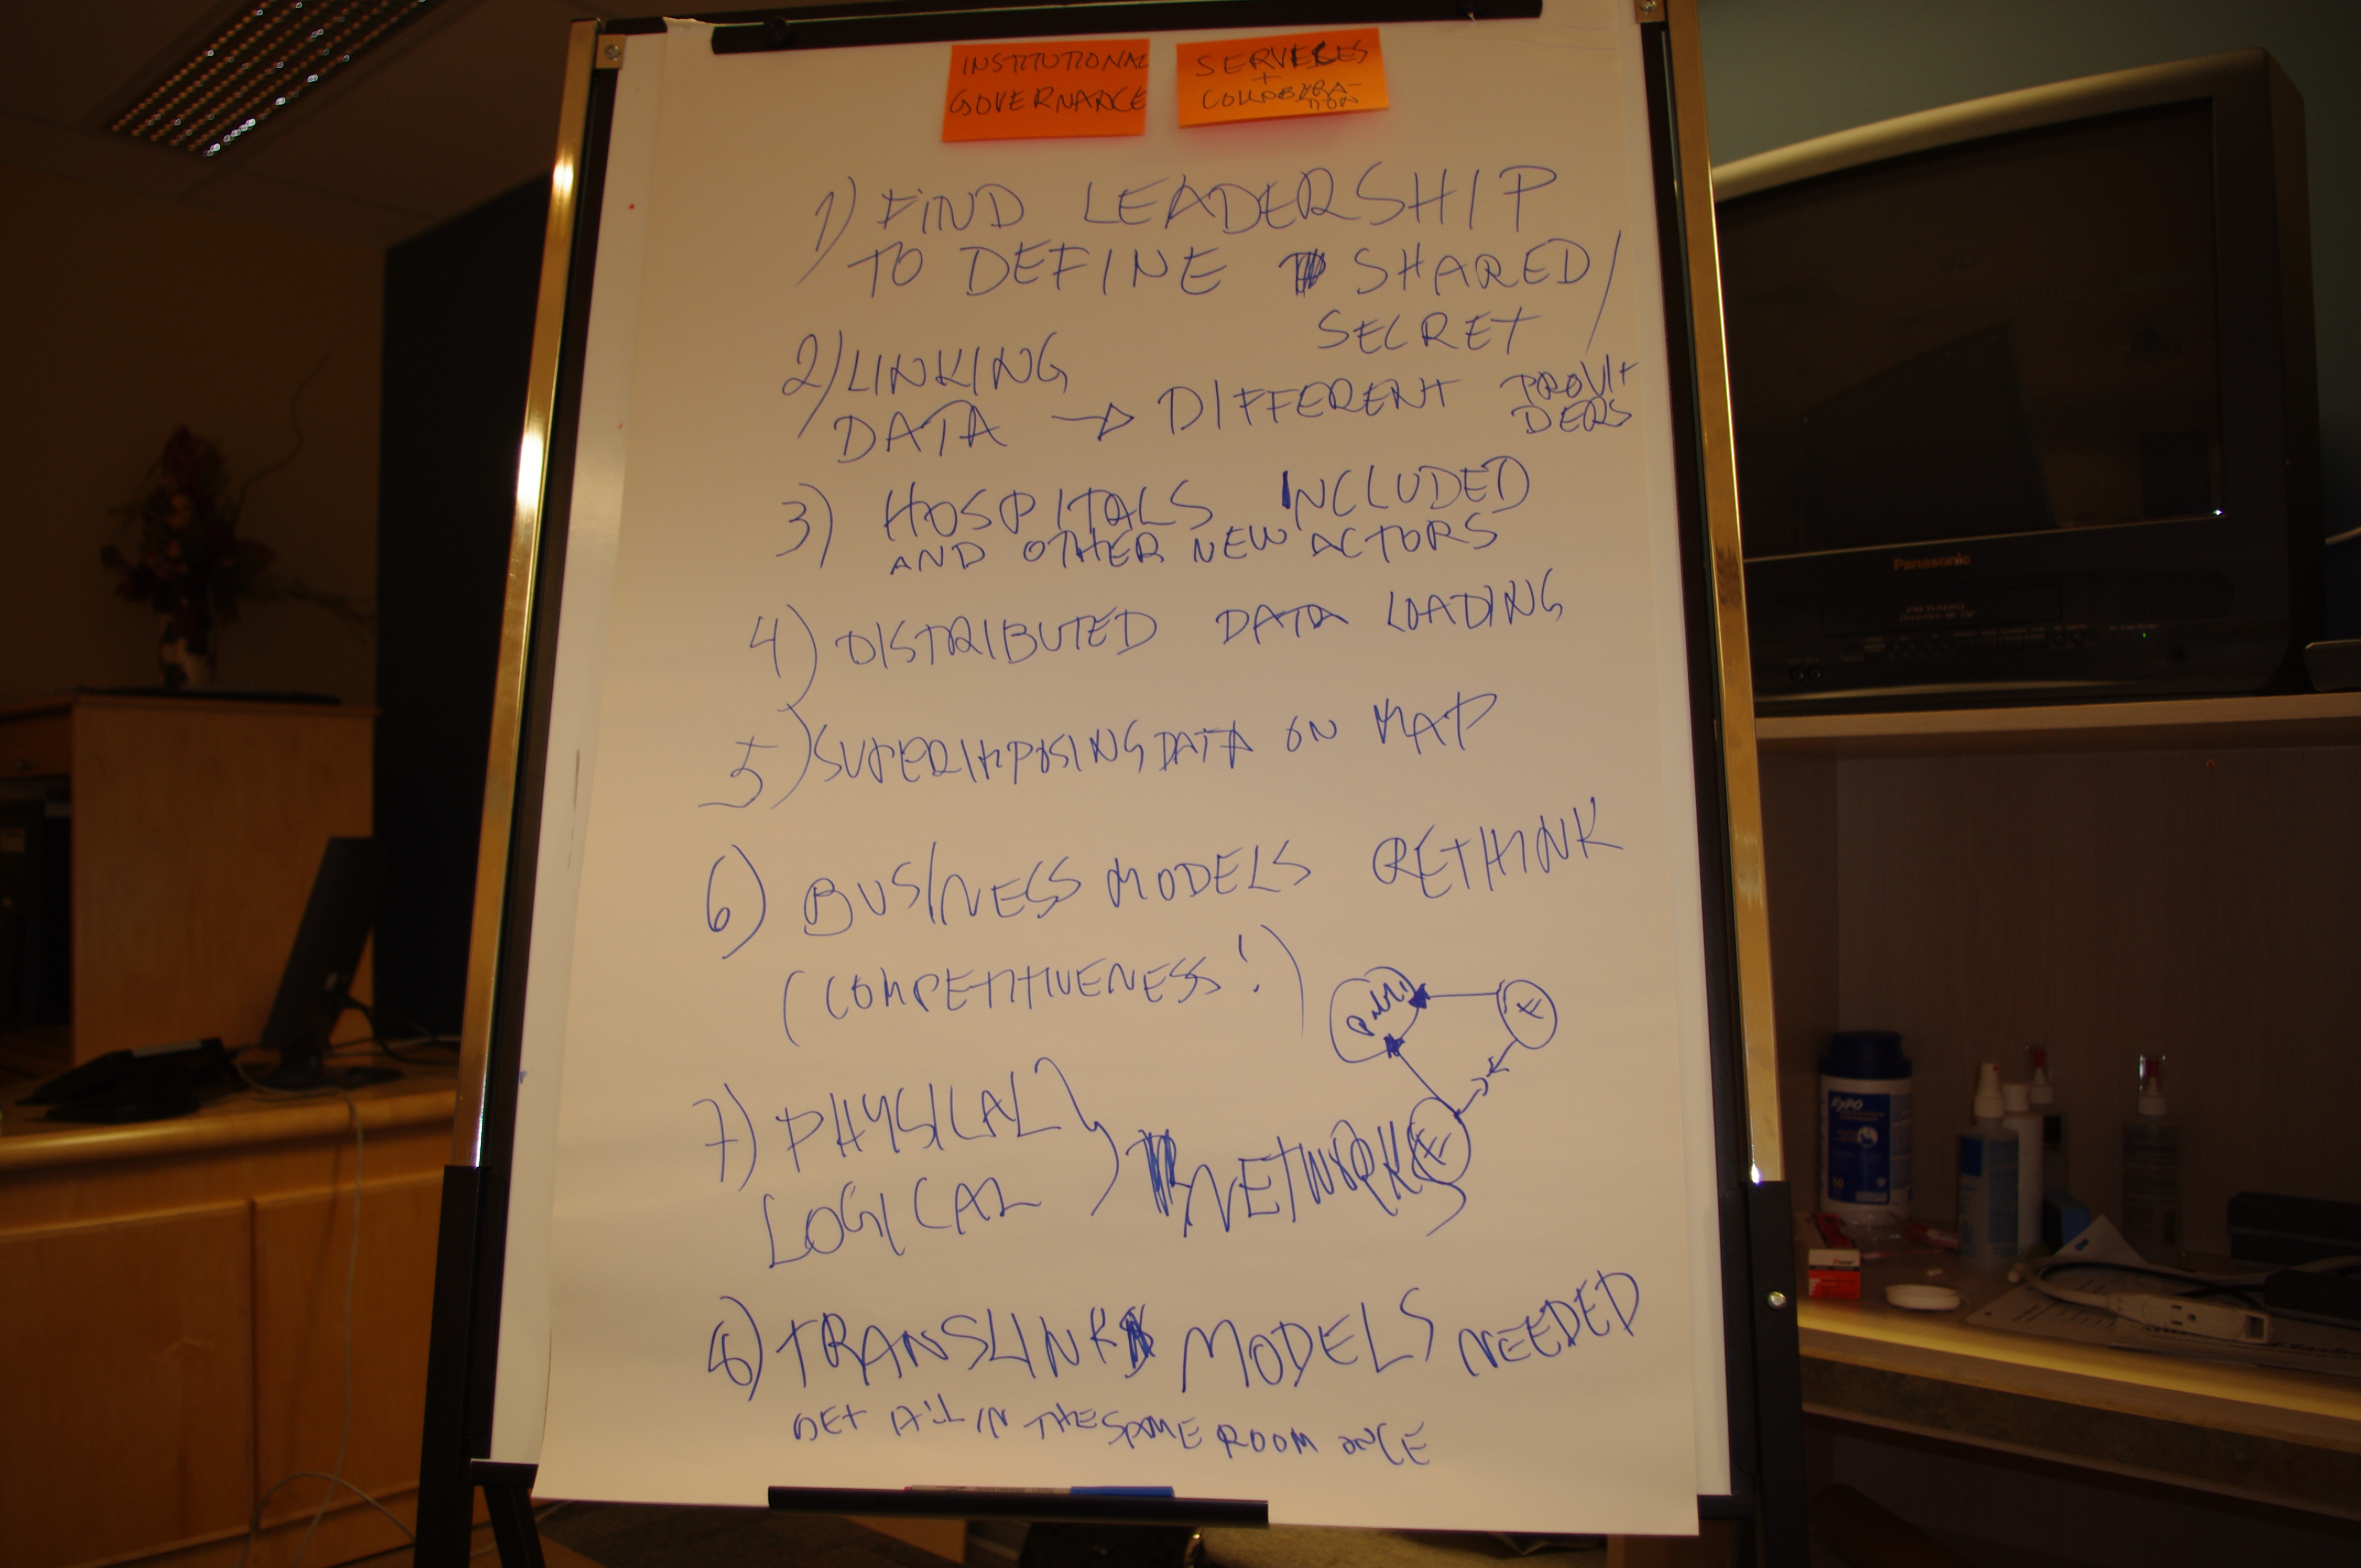 INSTITUTIONAL
GOVERNANCE
SERVICES
+
COLLABORA-
TION
1) FIND LEADERSHIP
TO DEFINE SHARED/
SECRET
2) LINKING
DATA → DIFFERENT PROVI-
DERS
3) HOSPITALS INCLUDED
AND OTHER NEW ACTORS
4) DISTRIBUTED DATA LOADING
5) SUPERIMPOSING DATA ON MAP
6) BUSINESS MODELS RETHINK
(COMPETITIVENESS!)
7) PHYSICAL
LOGICAL } NETWORKS
8) TRANSLINK MODELS NEEDED
GET ALL IN THE SAME ROOM ONCE
Panasonic
FM RADIO
EXPO